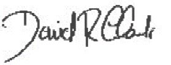 David R Clark